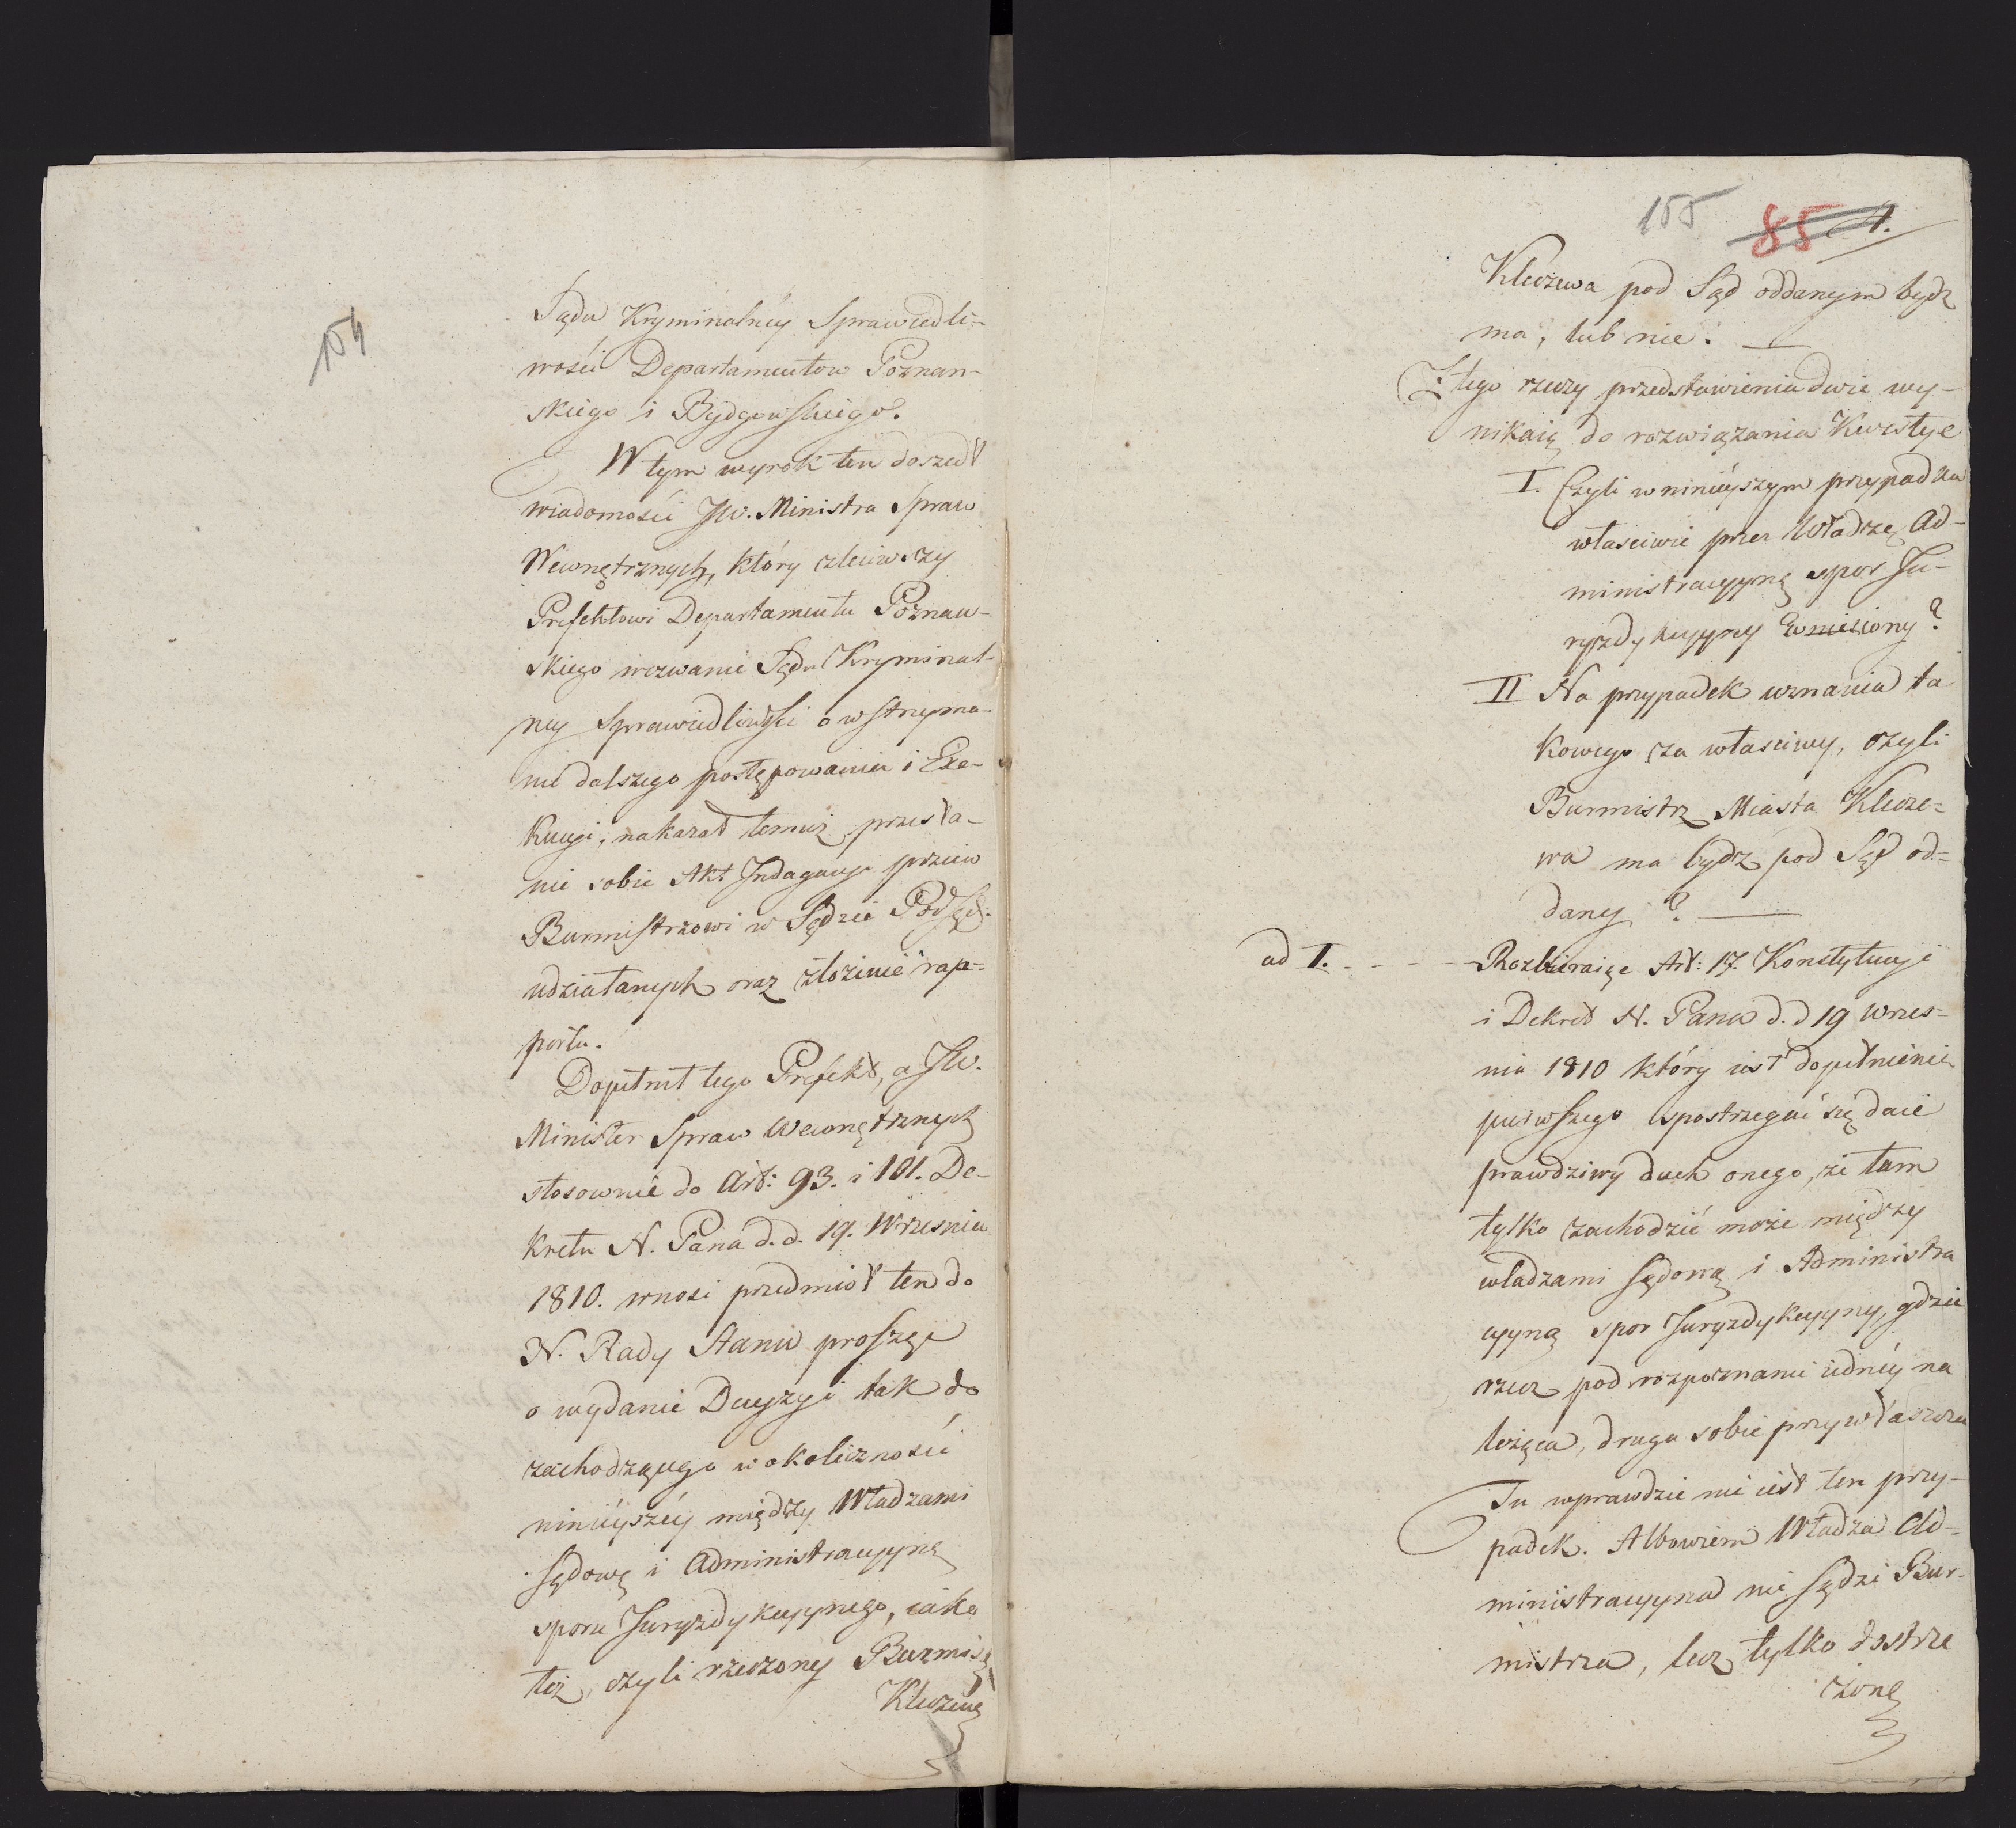 154
Sądu Kryminalney Sprawiedli-
wości Departamentow Poznan-
skiego i Bydgowskiego.
W tym wyrok ten doszedł
wiadomości JW. Ministra Spraw
Wewnętrznych, który zleciwszy
Prefektowi Departamentu Poznan-
skiego wezwanie Sądu Kryminal-
ney Sprawiedliwości o wstrzyma-
nie dalszego postępowania i Exe-
kucyi, nakazał temuż przesła-
nie sobie Akt Indagacyi przeciw
Burmistrzowi w Sądzie Podsęd:
udziałanych oraz złożenie rap-
portu.
Dopełnił tego Prefekt, a JW.
Minister Spraw Wewnętrznych
stosownie do Art: 93. i 101. De-
kretu N. Pana d.d. 19. Wrzesnia
1810. wnosi przedmiot ten do
N. Rady Stanu proszęc
o wydanie Decyzyi tak do
zachodzącego w okoliczności
ninieyszéy między Władzami
Sądową i Administracyyną
sporu Juryzdykcyynego, iako
też, czyli rzeczony Burmistz
Kleczewa
155 85 4.
Kleczewa pod Sąd oddanym bydz
ma, lub nie. —
Z tego rzeczy przedstawienia dwie wy-
nikaią do rozwiązania Kwestye
I. Czyli w ninieyszym przypadku
właściwie przez Władzę Ad-
ministracyyną spor Ju-
ryzdykcyyny wniesiony?
II Na przypadek uznania ta
kowego za właściwy, czyli
Burmistrz Miasta Klecze-
wa ma bydz pod Sąd od-
dany? —
ad I. - - - - Rozbieraiąc Art: 17. Konstytucyi
i Dekret N. Pana d.d 19 Wrzes-
nia 1810 który iest dopełnienie
pierwszego spostrzegać się daie
prawdziwy duch onego, że tam
tylko zachodzić może między
władzami Sądową i Administra
cyyną spor Juryzdykcyyny, gdzie
rzecz pod rozpoznanie iednéy na
leżąca, druga sobie przywłaszcza
Tu wprawdzie nie iest ten przy-
padek. Albowiem Władza Ad-
ministracyyna nie sądzi Bur-
mistrza, lecz tylko dostrze
żoną